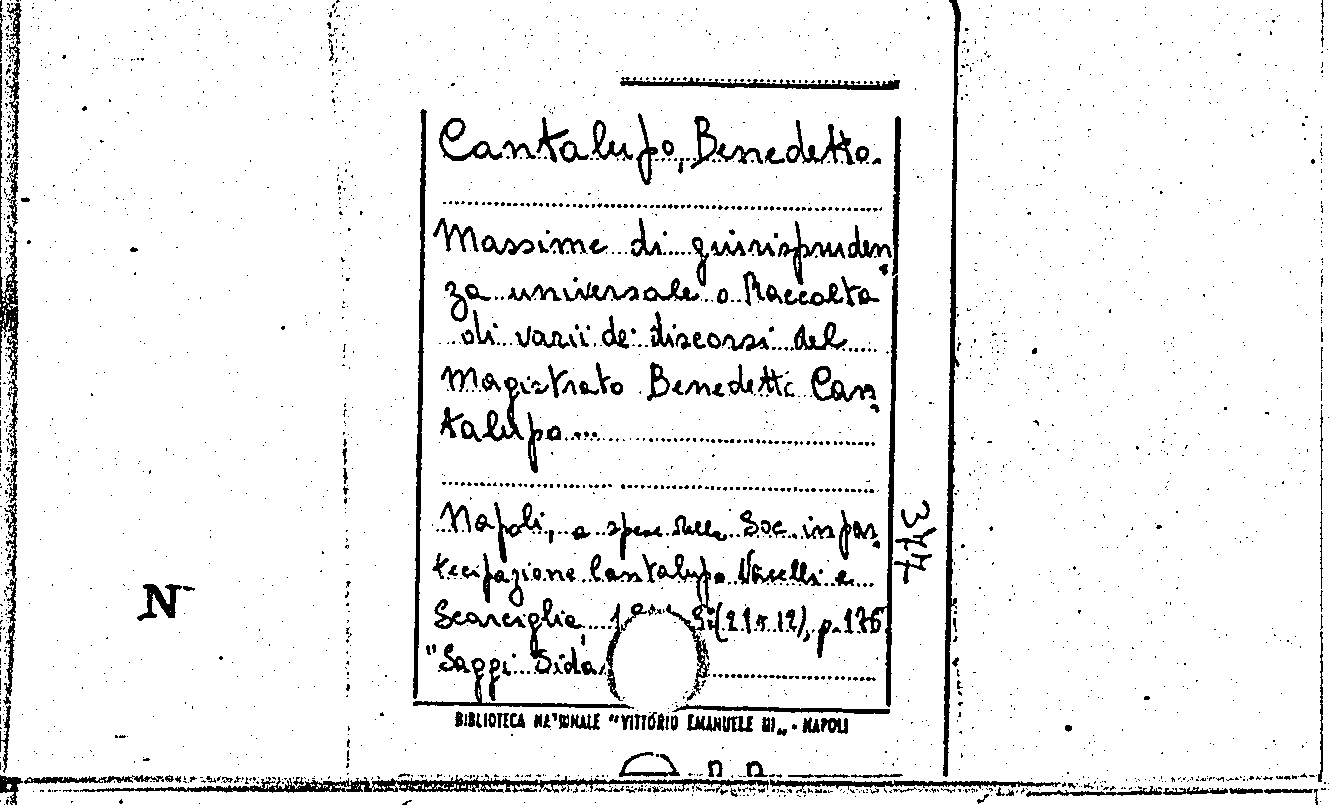 Cantalupo, Benedetto.
Massime di giurispruden
za universale o Raccolta
di varii de' discorsi del
Magistrato Benedetto Can
talupo...
Napoli, a spese della Soc. in par
tecipazione Cantalupo Vacelli e
Scarciglia, (21x12), p. 176
"Saggi Sida
344
N
BIBLIOTECA NAZIONALE "VITTORIO EMANUELE III„ - NAPOLI